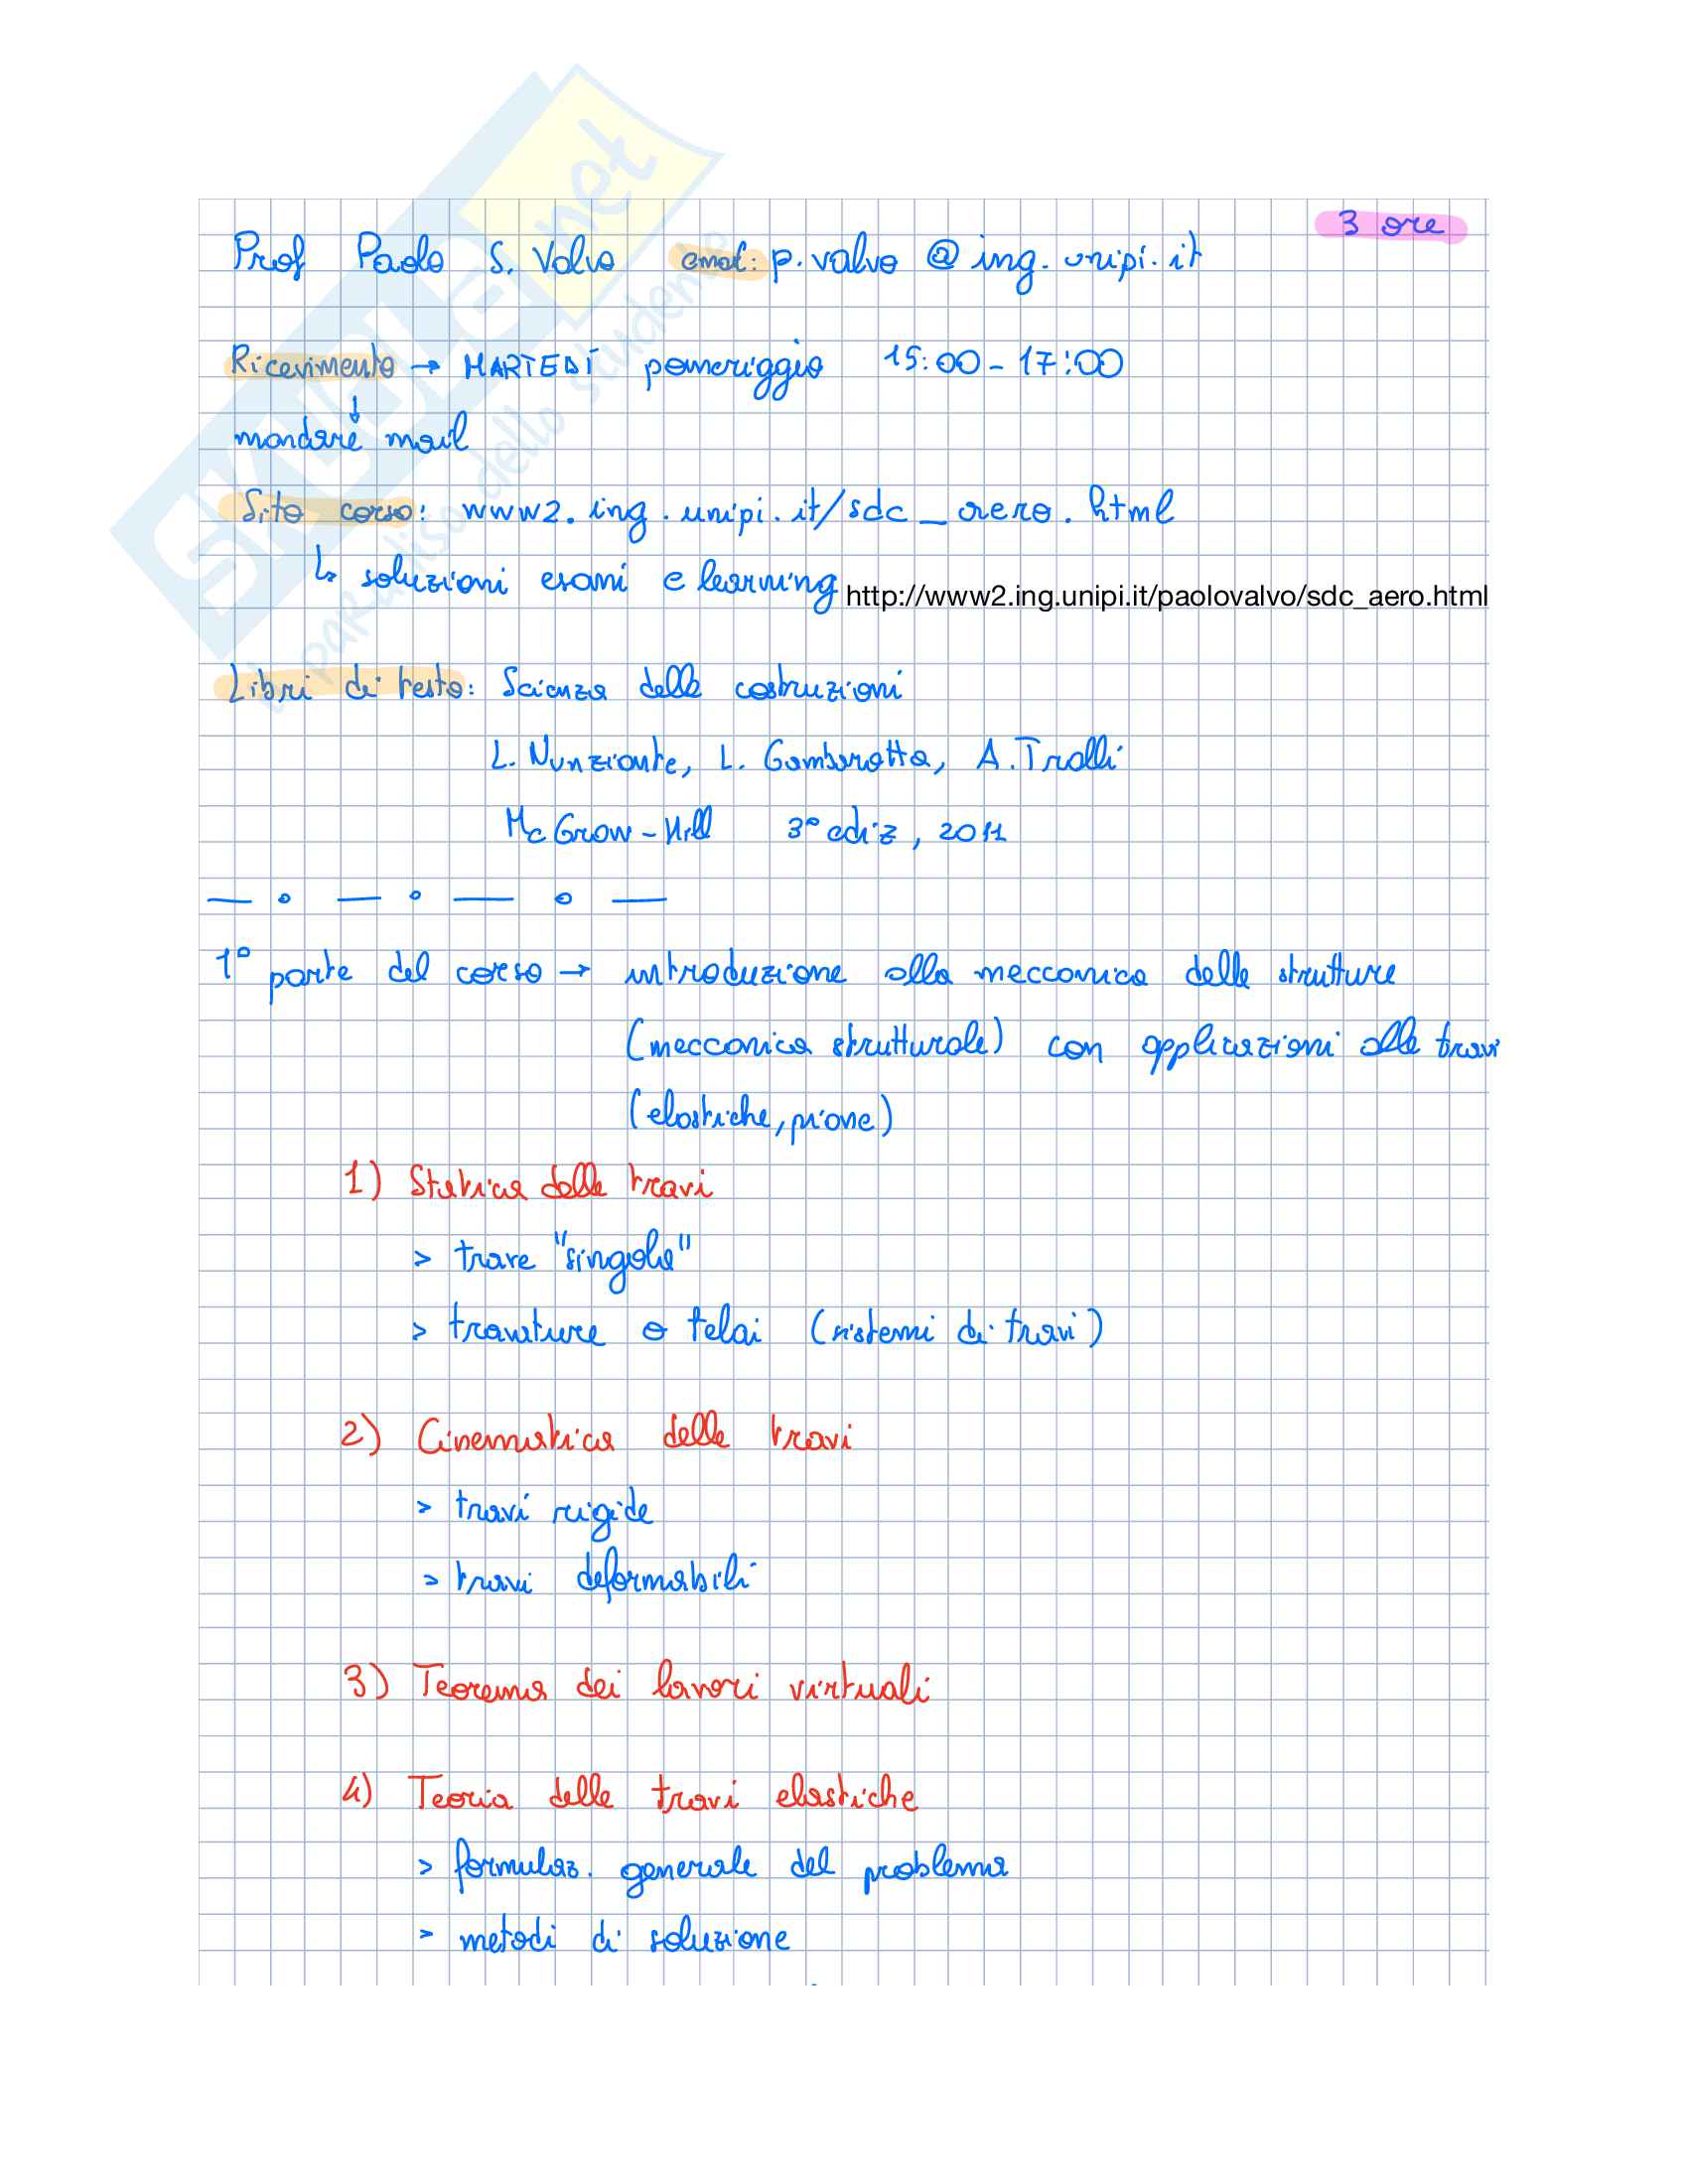 3 ore
Prof Paolo S. Valvo email: p.valvo @ ing.unipi.it
Ricevimento → MARTEDÌ pomeriggio 15:00 - 17:00
↓
mandare mail
Sito corso: www2.ing.unipi.it/sdc_aero.html
↳ soluzioni esami e learning http://www2.ing.unipi.it/paolovalvo/sdc_aero.html
Libri di testo: Scienza delle costruzioni
L. Nunziante, L. Gambarotta, A. Tralli
McGraw-Hill 3° ediz, 2011
1° parte del corso → introduzione alla meccanica delle strutture
(meccanica strutturale) con applicazioni alle travi
(elastiche, piane)
1) Statica delle travi
> trave "singola"
> travature o telai (sistemi di travi)
2) Cinematica delle travi
> travi rigide
> travi deformabili
3) Teorema dei lavori virtuali
4) Teoria delle travi elastiche
> formulaz. generale del problema
> metodi di soluzione
SKUOLA.net
il paradiso dello studente